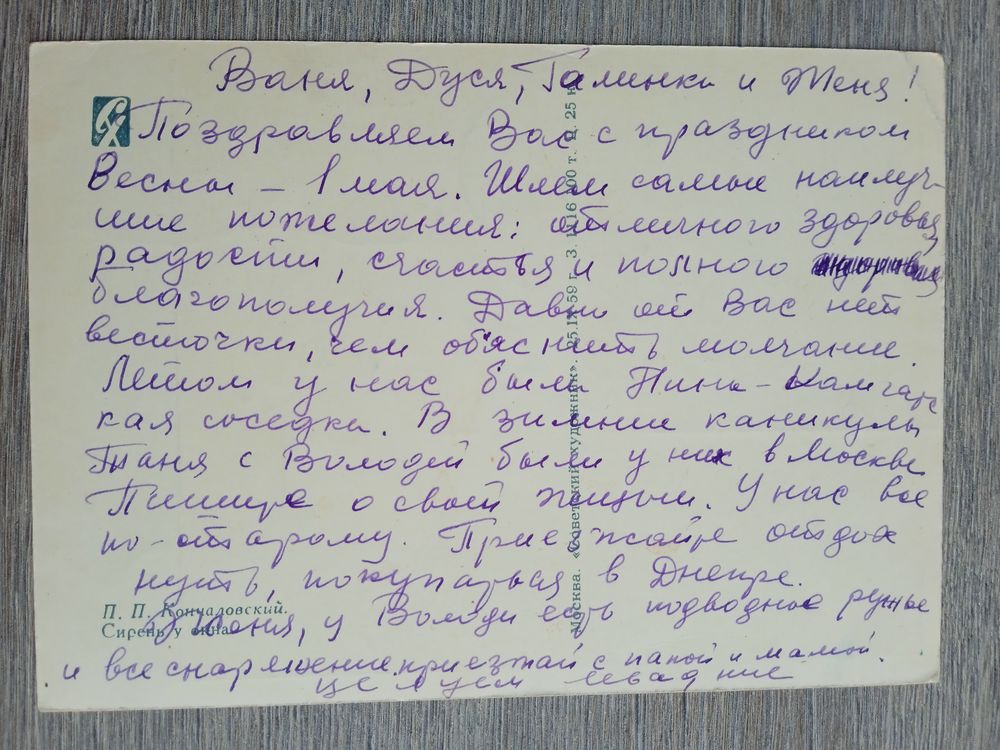 Ваня, Дуся, Галинка и Женя!
Поздравляем Вас с праздником
Весны – 1 мая. Шлем самые наилуч-
шие пожелания: отличного здоровья,
радости, счастья и полного
благополучия. Давно от Вас нет
весточки, чем объяснить молчание.
Летом у нас была Нина – Камчатс
кая соседка. В зимние каникулы
Таня с Володей были у них в Москве
Пишите о своей жизни. У нас все
по-старому. Приезжайте отдох
нуть, покупаться в Днепре.
П. П. Кончаловский.
Сирень у окна.
Женя, у Володи есть подводное ружье
и все снаряжение, приезжай с папой и мамой.
целуем
Москва. «Советский художник». 25.IX-59 г. З. 1116 100 т. Ц. 25 к.